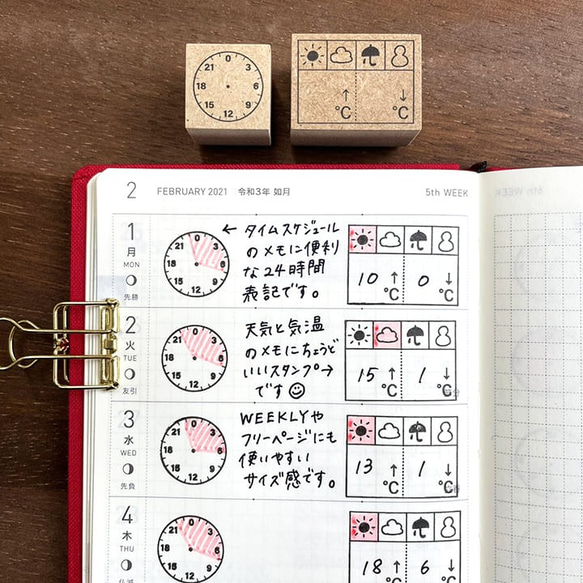 0
3
6
9
12
15
18
21
↑
℃
↓
℃
2 FEBRUARY 2021 令和3年 如月 5th WEEK
1
月
MON
先勝
0
3
6
9
12
15
18
21
← タイムスケジュール
のメモに便利
な24時間
表記です。
10 ↑ ℃ 0 ↓ ℃
2
火
TUE
友引
0
3
6
9
12
15
18
21
天気と気温
のメモにちょうど
いいスタンプ→
です☺
15 ↑ ℃ 1 ↓ ℃
3
水
WED
先負
0
3
6
9
12
15
18
21
WEEKLYや
フリーページにも
使いやすい
サイズ感です。
13 ↑ ℃ 1 ↓ ℃
4
木
THU
仏滅
0
3
6
9
12
15
18
21
18 ↑ ℃ 6 ↓ ℃